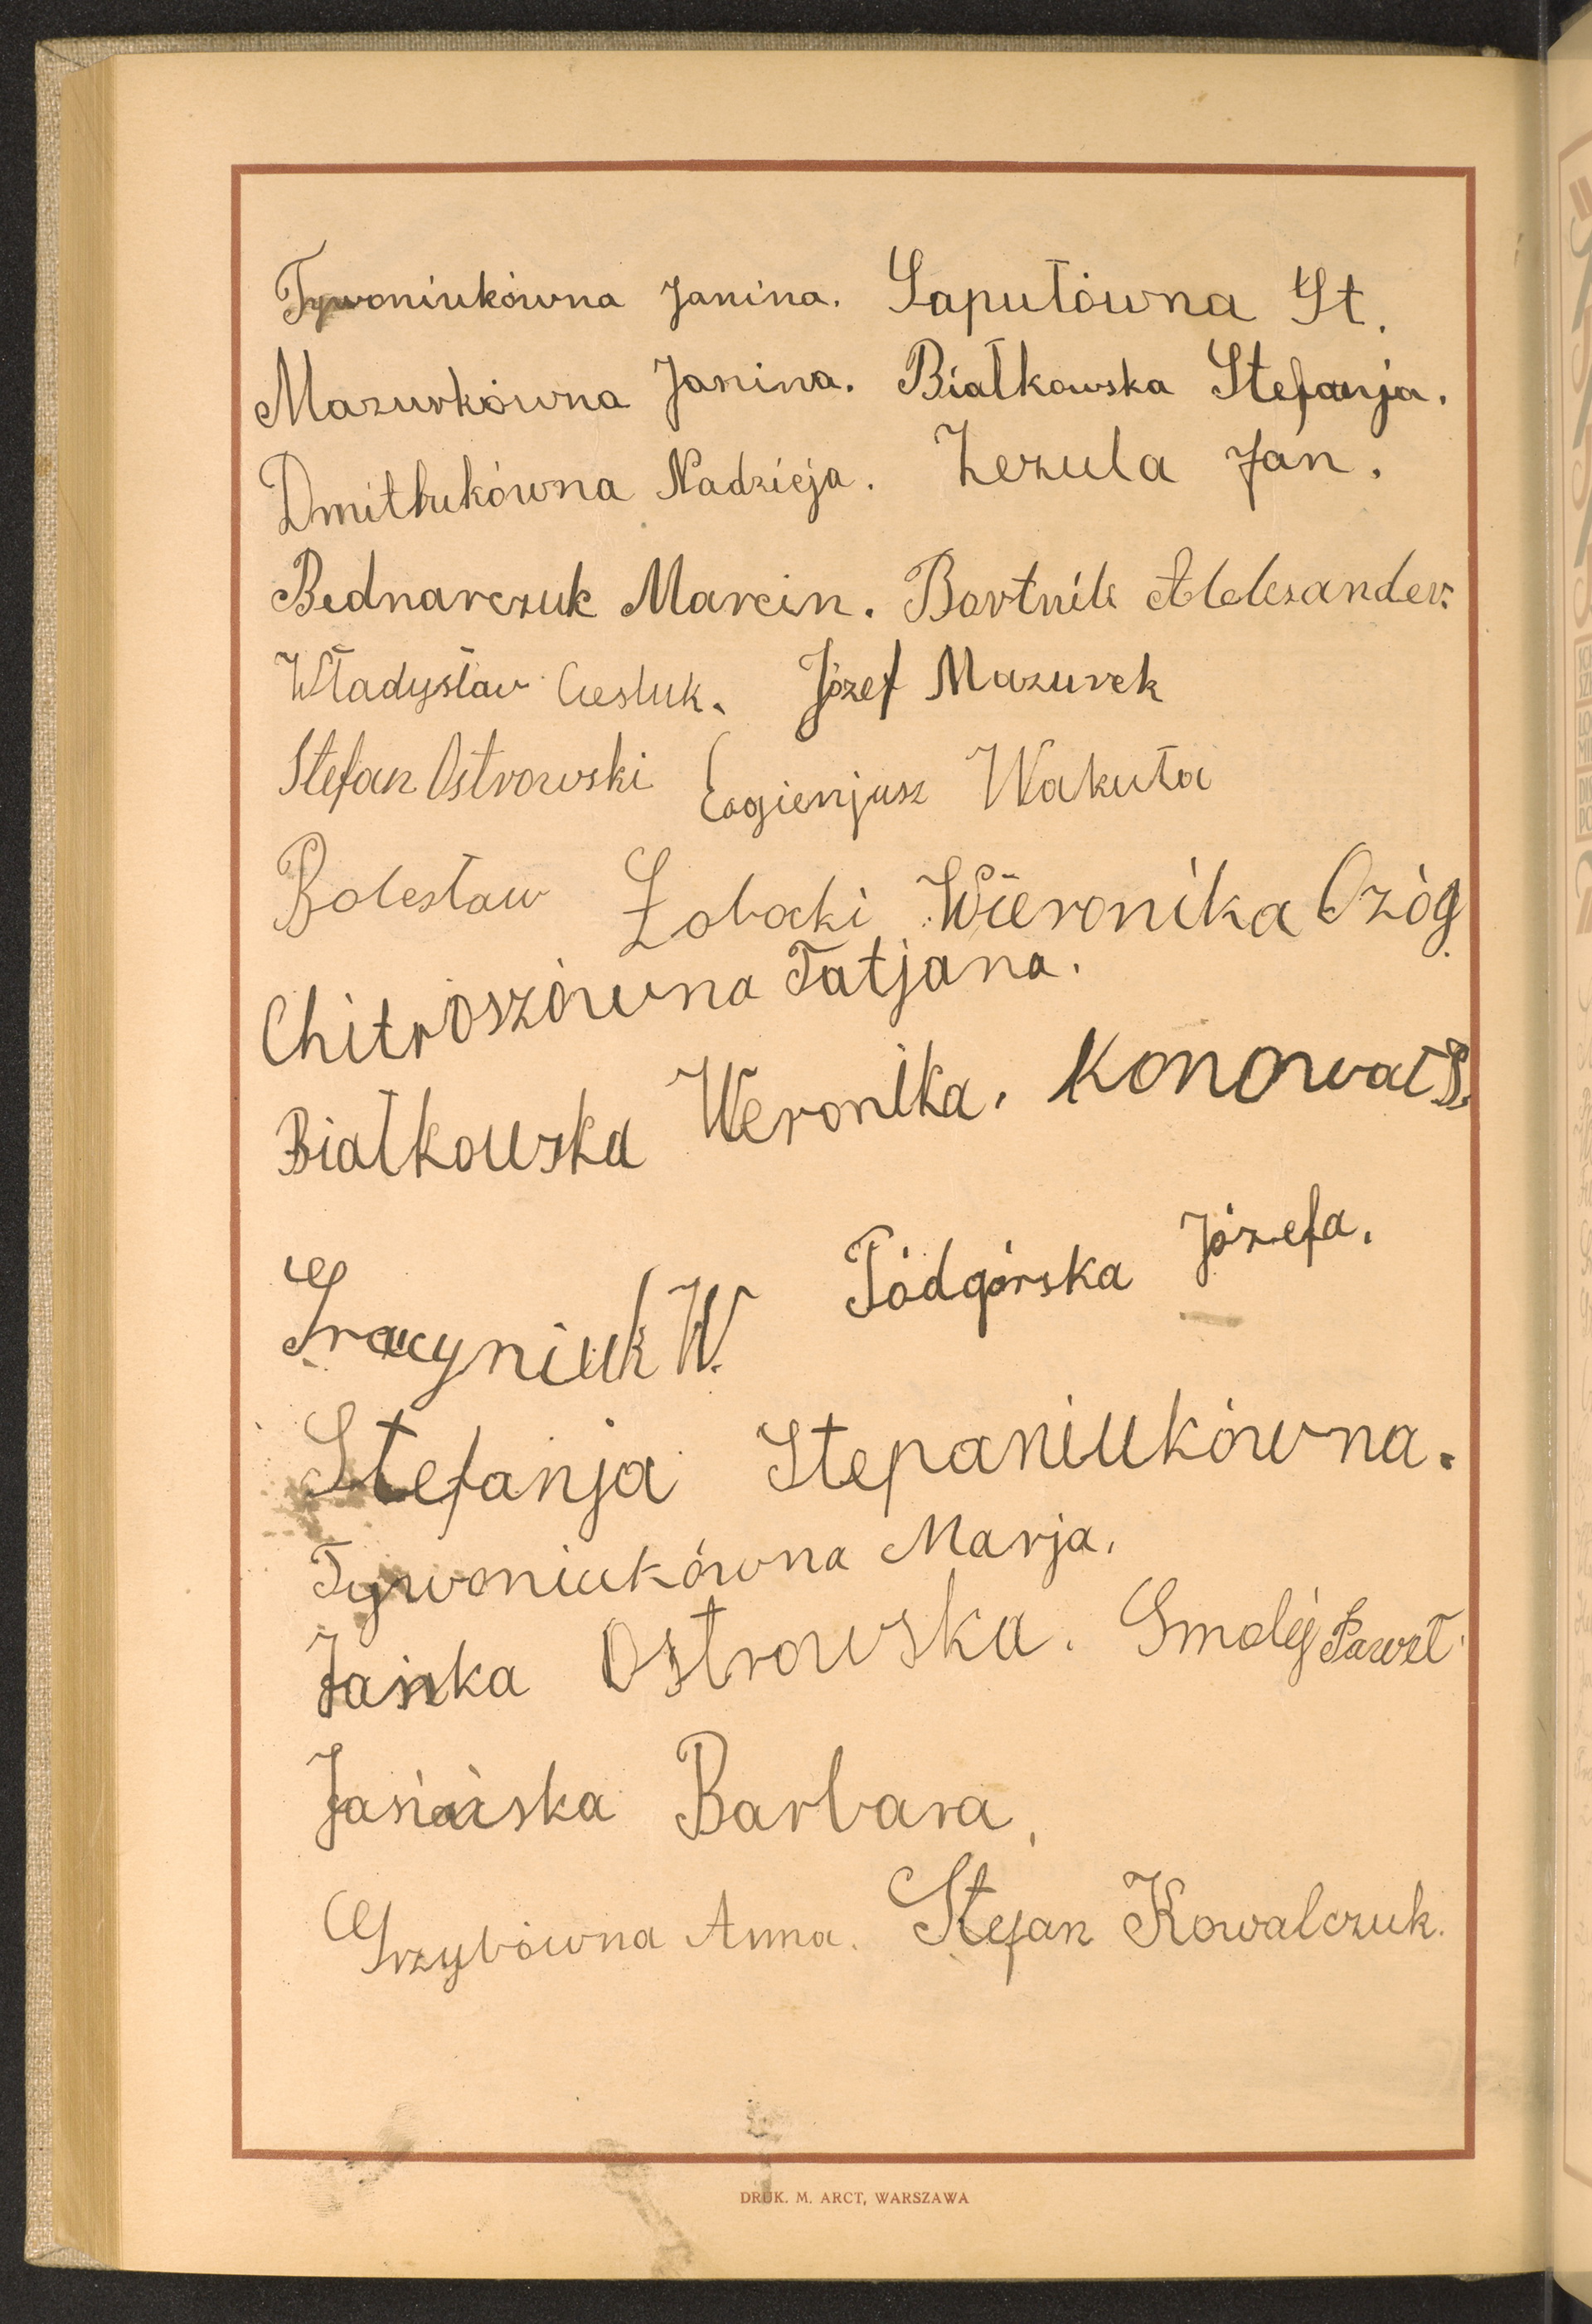 Tywoniukówna Janina. Saputówna St.
Mazurkówna Janina. Białkowska Stefanja.
Dmitrukówna Nadzieja. Zezula Jan.
Bednarczuk Marcin. Bortnik Aleksander.
WładysławCiesluk. Józef Mazurek
Stefan Ostrowski Eugienjusz Wakuła
Bolesław Łobacki Wieronika Ożóg
Chitroszówna Tatjana.
Białkowska Weronika. Konował S.
Hracyniuk W. Pódgórska Józefa.
Stefanja Stepaniukówna.
Tywoniukówna Marja.
Janka Ostrowska. Smolij Paweł
Barbara,
Grzybówna Anna. Stefan Kowalczuk.
DRUK. M. ARCT, WARSZAWA